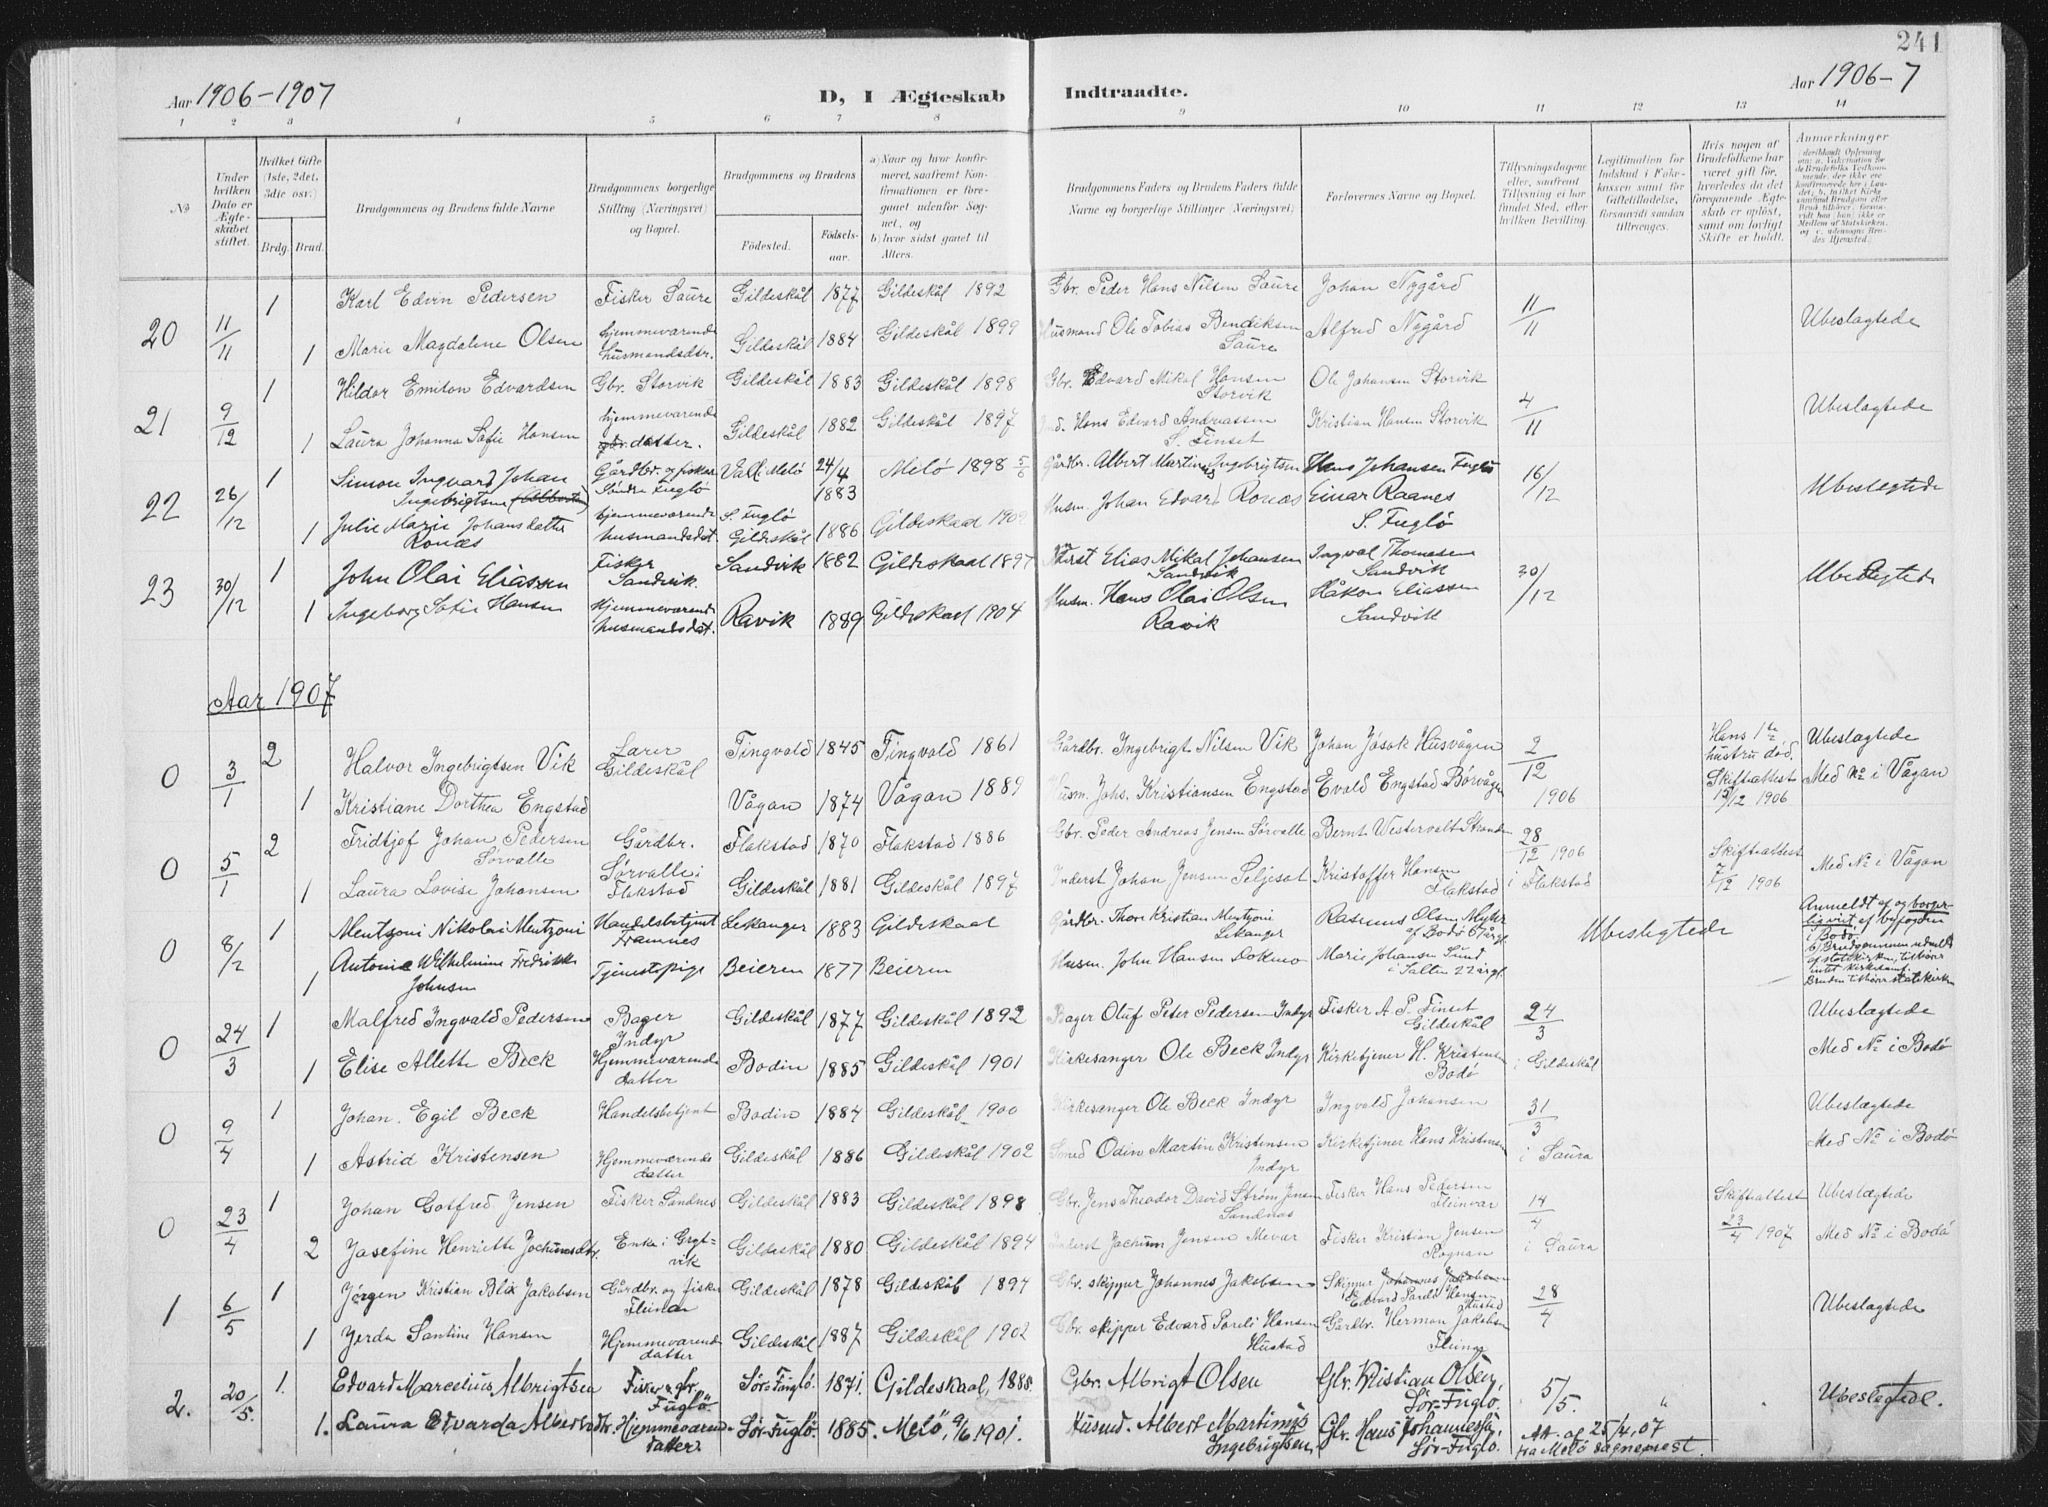 241
Aar 1906-1907
D, I Ægteskab
Indtraadte.
Aar 1906-7
1 2 3 4 5 6 7 8 9 10 11 12 13 14
№
Under hvilken Dato er Ægteskabet stiftet.
Hvilket Gifte (1ste, 2det, 3die osv.)
Brdg. Brud.
Brudgommens og Brudens fulde Navne
Brudgommens borgerlige Stilling (Næringsvei) og Bopæl.
Brudgommens og Brudens
Fødested.
Fødselsaar.
a) Naar og hvor konfirmeret, saafremt Konfirmationen er foregaaet udenfor Sognet, og
b) hvor sidst gaaet til Alters.
Brudgommens Faders og Brudens Faders fulde Navne og borgerlige Stillinger (Næringsvei)
Forlovernes Navne og Bopæl.
Tillysningsdagene eller, saafremt Tillysning ei har fundet Sted, efter hvilken Bevilling.
Legitimation for Indskud i Enkekassen samt for Giftetilladelse, forsaavidt saadan tiltrænges.
Hvis nogen af Brudefolkene har været gift før, hvorledes da det foregaaende Ægteskab er opløst, samt om lovligt Skifte er holdt.
Anmærkninger
20 11/11 1 Karl Edvin Pedersen Fisker Saure Gildeskål 1877 Gildeskål 1892 Gbr. Peder Hans Nilsen Saure Johan Nygård 11/11 Ubeslagtede
1 Marie Magdalene Olsen hjemmeværende husmandsdtr. Gildeskål 1884 Gildeskål 1899 Husmand Ole Tobias Bendiksen Saure Alfred Nygård
21 9/12 1 Hildor Emiton Edvardsen Gbr. Storvik Gildeskål 1883 Gildeskål 1898 Gbr. Edvard Mikal Hansen Storvik Ole Johansen Storvik 4/11 Ubeslagtede
1 Laura Johanna Sofie Hansen hjemmeværende gbr. datter. Gildeskål 1882 Gildeskål 1897 Hans Edvard Andreassen S. Finset Kristian Hansen Storvik
22 26/12 1 Simon Ingvard Johan Ingebrigtsen Gårdbr. og fisker Søndre Fuglø Vall Melø 24/4 1883 Melö 1898 5/6 Gårdbr. Albert Martinus Ingebrigtsen Hans Johansen Fuglø 16/12 Ubeslegtede
1 Julie Marie Johansdatter Ronæs hjemmeværende husmandsdat. S. Fuglø Gildeskål 1886 Gildeskaal 1902 Husm. Johan Edvard Ronæs Einar Raanes S. Fuglö
23 30/12 1 John Olai Eliassen Fisker Sandvik. Sandvik 1882 Gildeskaal 1897 Inderst Elias Mikal Johansen Sandvik Ingval Thomasen Sandvik 30/12 Ubeslegtede
1 Ingeborg Sofie Hansen Hjemmeværende husmandsdat. Ravik 1889 Gildeskaal 1904 Husm. Hans Olai Olsen Ravik Håkon Eliassen Sandvik
Aar 1907
0 3/1 2 Halvor Ingebrigtsen Vik Lærer Gildeskål Tingvold 1845 Tingvold 1861 Gårdbr. Ingebrigt Nilsen Vik Johan Jósok Husvågen 2/12 1906 Hans 1te hustru död. Skifteattest 13/12 1906 Ubeslagtede Med № i Vågan
1 Kristiane Dorthea Engstad Vågan 1874 Vågan 1889 Husm. Johs. Kristiansen Engstad Evald Engstad Børvågen
0 5/1 2 Fridtjof Johan Pedersen Sørvalle Gårdbr. Sørvalle i Flakstad Flakstad 1870 Flakstad 1886 Gbr. Peder Andreas Jensen Sørvalle Bernt Westervalt Stranden 28/12 1906 i Flakstad Skifteattest 7/12 1906 Med № i Vågan
1 Laura Lovise Johansen Gildeskål 1881 Gildeskål 1897 Inderst Johan Jensen Seljeset Kristoffer Hansen Flakstad
0 8/2 1 Mentzoni Nikolai Mentzoni Handelsbetjent Framnes Lekanger 1883 Gildeskaal Gårdbr. Thore Kristian Mentzoni Lekanger Rasmus Olsen Myhr af Bodö Ubeslegtede Anmeldt af og borgerlig viet af byfogden i Bodø.
1 Antonie Wilhelmine Fredrikke Johnsen Tjenestepige Beieren 1877 Beieren Husm. John Hansen Dokmo Marie Johansen Sund i Salten 22 årgl.
b) Brudgommen udmeldt af statskirken, tilhører intet kirkesamf. Bruden tilhører statskirken
0 24/3 1 Malfred Ingvald Pedersen Bager Indyr Gildeskål 1877 Gildeskål 1892 Bager Oluf Peter Pedersen Indyr Fisker A. P. Finset Gildeskål 24/3 i Gildeskål Ubeslagtede Med № i Bodø
1 Elise Allette Beck Hjemmeværende datter Bodin 1885 Gildeskål 1901 Kirkesanger Ole Beck Indyr Kirketjener H. Kristensen Bodø
0 9/4 1 Johan Egil Beck Handelsbetjent Bodin 1884 Gildeskål 1900 Kirkesanger Ole Beck Indyr Ingvald Johansen 31/3 i Saura Ubeslægtede Med № i Bodø
1 Astrid Kristensen Hjemmeværende datter Gildeskål 1886 Gildeskål 1902 Odin Martin Kristensen Indyr Kirketjener Hans Kristensen
0 23/4 1 Johan Gotfred Jensen Fisker Sandnes Gildeskål 1883 Gildeskål 1898 Gbr. Jens Theodor David Strøm Jensen Sandnæs Fisker Hans Pedersen Fleinvær 14/4 i Saura Skifteattest 23/4 1907 Ubeslægtede Med № i Bodø
2 Josefine Henriette Jochumsdtr. Enke i Grytvik Gildeskål 1880 Gildeskål 1894 Inderst Jochum Jensen Mevær Fisker Kristian Jensen Rognan
1 6/5 1 Jørgen Kristian Blix Jakobsen Gårdbr. og fisker Fleinvær Gildeskål 1878 Gildeskål 1894 Gbr. skipper Johannes Jakobsen Skipper Johannes Jakobsen Edvard Pareli Hansen Hustad 28/4 Ubeslagtede
1 Jerda Santine Hansen Hjemmeværende datter Gildeskål 1887 Gildeskål 1902 Gbr. skipper Edvard Pareli Hansen Hustad Gårdbr. Herman Jakobsen Fleinvær
2. 20/5. 1. Edvard Marcelius Albrigtsen Fisker & gbr. Fuglö Sör-Fuglö. 1871. Gildeskaal, 1885. Gbr. Albrigt Olsen Gbr. Kristian Olsen, Sör-Fuglö. 5/5. " Ubeslegtede.
1. Laura Edvarda Albertsdtr. Hjemmeværende datter. Sör-Fuglö. 1885. Melö, 9/6 1901. Husmd. Albert Martinus Ingebrigtsen, Gbr. Hans Johannesen, Sör-Fuglö. Att. af 25/4, 07 fra Melö sogneprest.